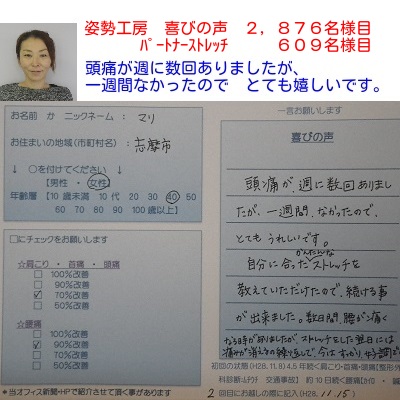 姿勢工房 喜びの声 2,876名様目
パートナーストレッチ 609名様目
頭痛が週に数回ありましたが、
一週間なかったので とても嬉しいです。
お名前 か ニックネーム： マリ
お住まいの地域(市町村名)
志摩市
↓ ○を付けてください ↓
【男性 ・ 女性】
年齢層 【10歳未満 10代 20 30 40 50
60 70 80 90 100歳以上】
□にチェックをお願いします
☆肩こり ・ 首痛 ・ 頭痛
100%改善
90%改善
70%改善
50%改善
☆腰痛
100%改善
90%改善
70%改善
50%改善
*当オフィス新聞・HPで紹介させて頂く事があります
一言お願いします
喜びの声
頭痛が週に数回ありまし
たが、一週間、なかったので、
とても うれしいです。
かんたんな
自分に合ったストレッチを
教えていただけたので、続ける事
が出来ました。数日間、腰が痛く
なる時がありましたが、ストレッチをした翌日には
痛みが消えるの繰り返しで、今はすっかり
初回の状態(H28.11.8)4.5年続く肩こり・首痛・頭痛【整形外
2回目にお越しの際に記入 (H28.11.15)